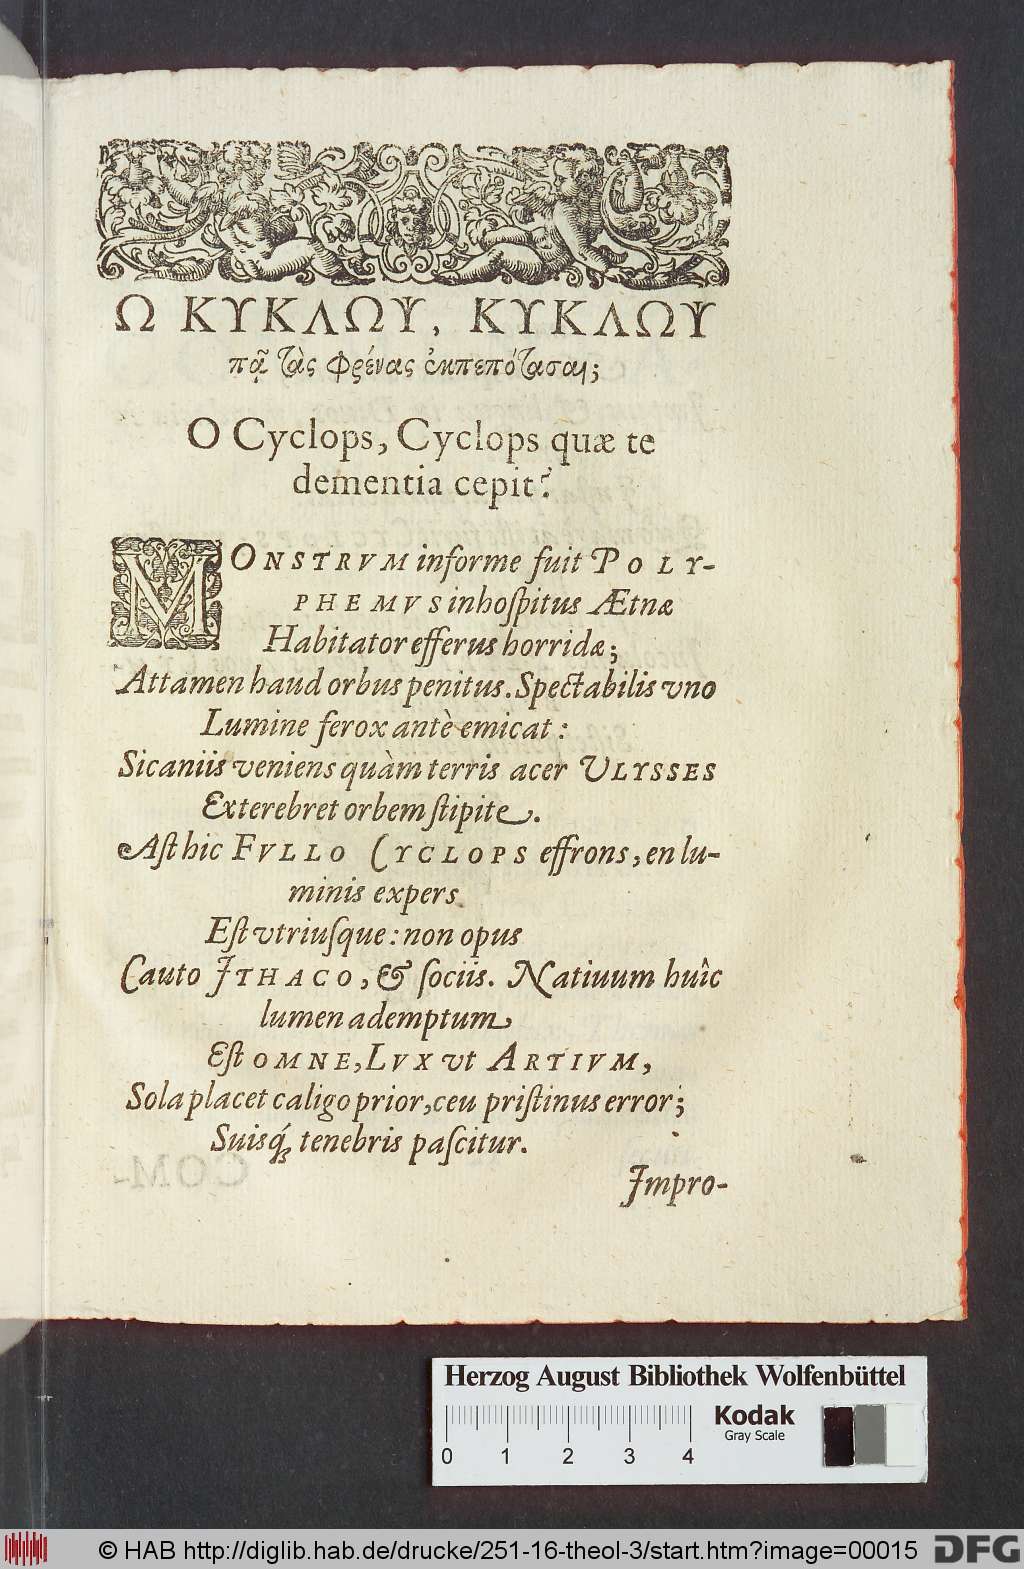 Ω ΚΥΚΛΩΨ, ΚΥΚΛΩΨ
πᾷ τὰς φρένας ἐκπεπότασαι;
O Cyclops, Cyclops quæ te
dementia cepit?
MONSTRVM informe fuit POLY-
PHEMVS inhoſpitus Ætnæ
Habitator efferus horridæ;
Attamen haud orbus penitus. Spectabilis vno
Lumine ferox antè emicat:
Sicaniis veniens quàm terris acer VLYSSES
Exterebret orbem ſtipite.
Aſt hic FVLLO CYCLOPS effrons, en lu-
minis expers
Eſt vtriuſque: non opus
Cauto ITHACO, & ſociis. Natiuum huîc
lumen ademptum
Eſt OMNE, LVX vt ARTIVM,
Sola placet caligo prior, ceu priſtinus error;
Suisq́; tenebris paſcitur.
Impro-
Herzog August Bibliothek Wolfenbüttel
Kodak
Gray Scale
0 1 2 3 4
© HAB http://diglib.hab.de/drucke/251-16-theol-3/start.htm?image=00015
DFG